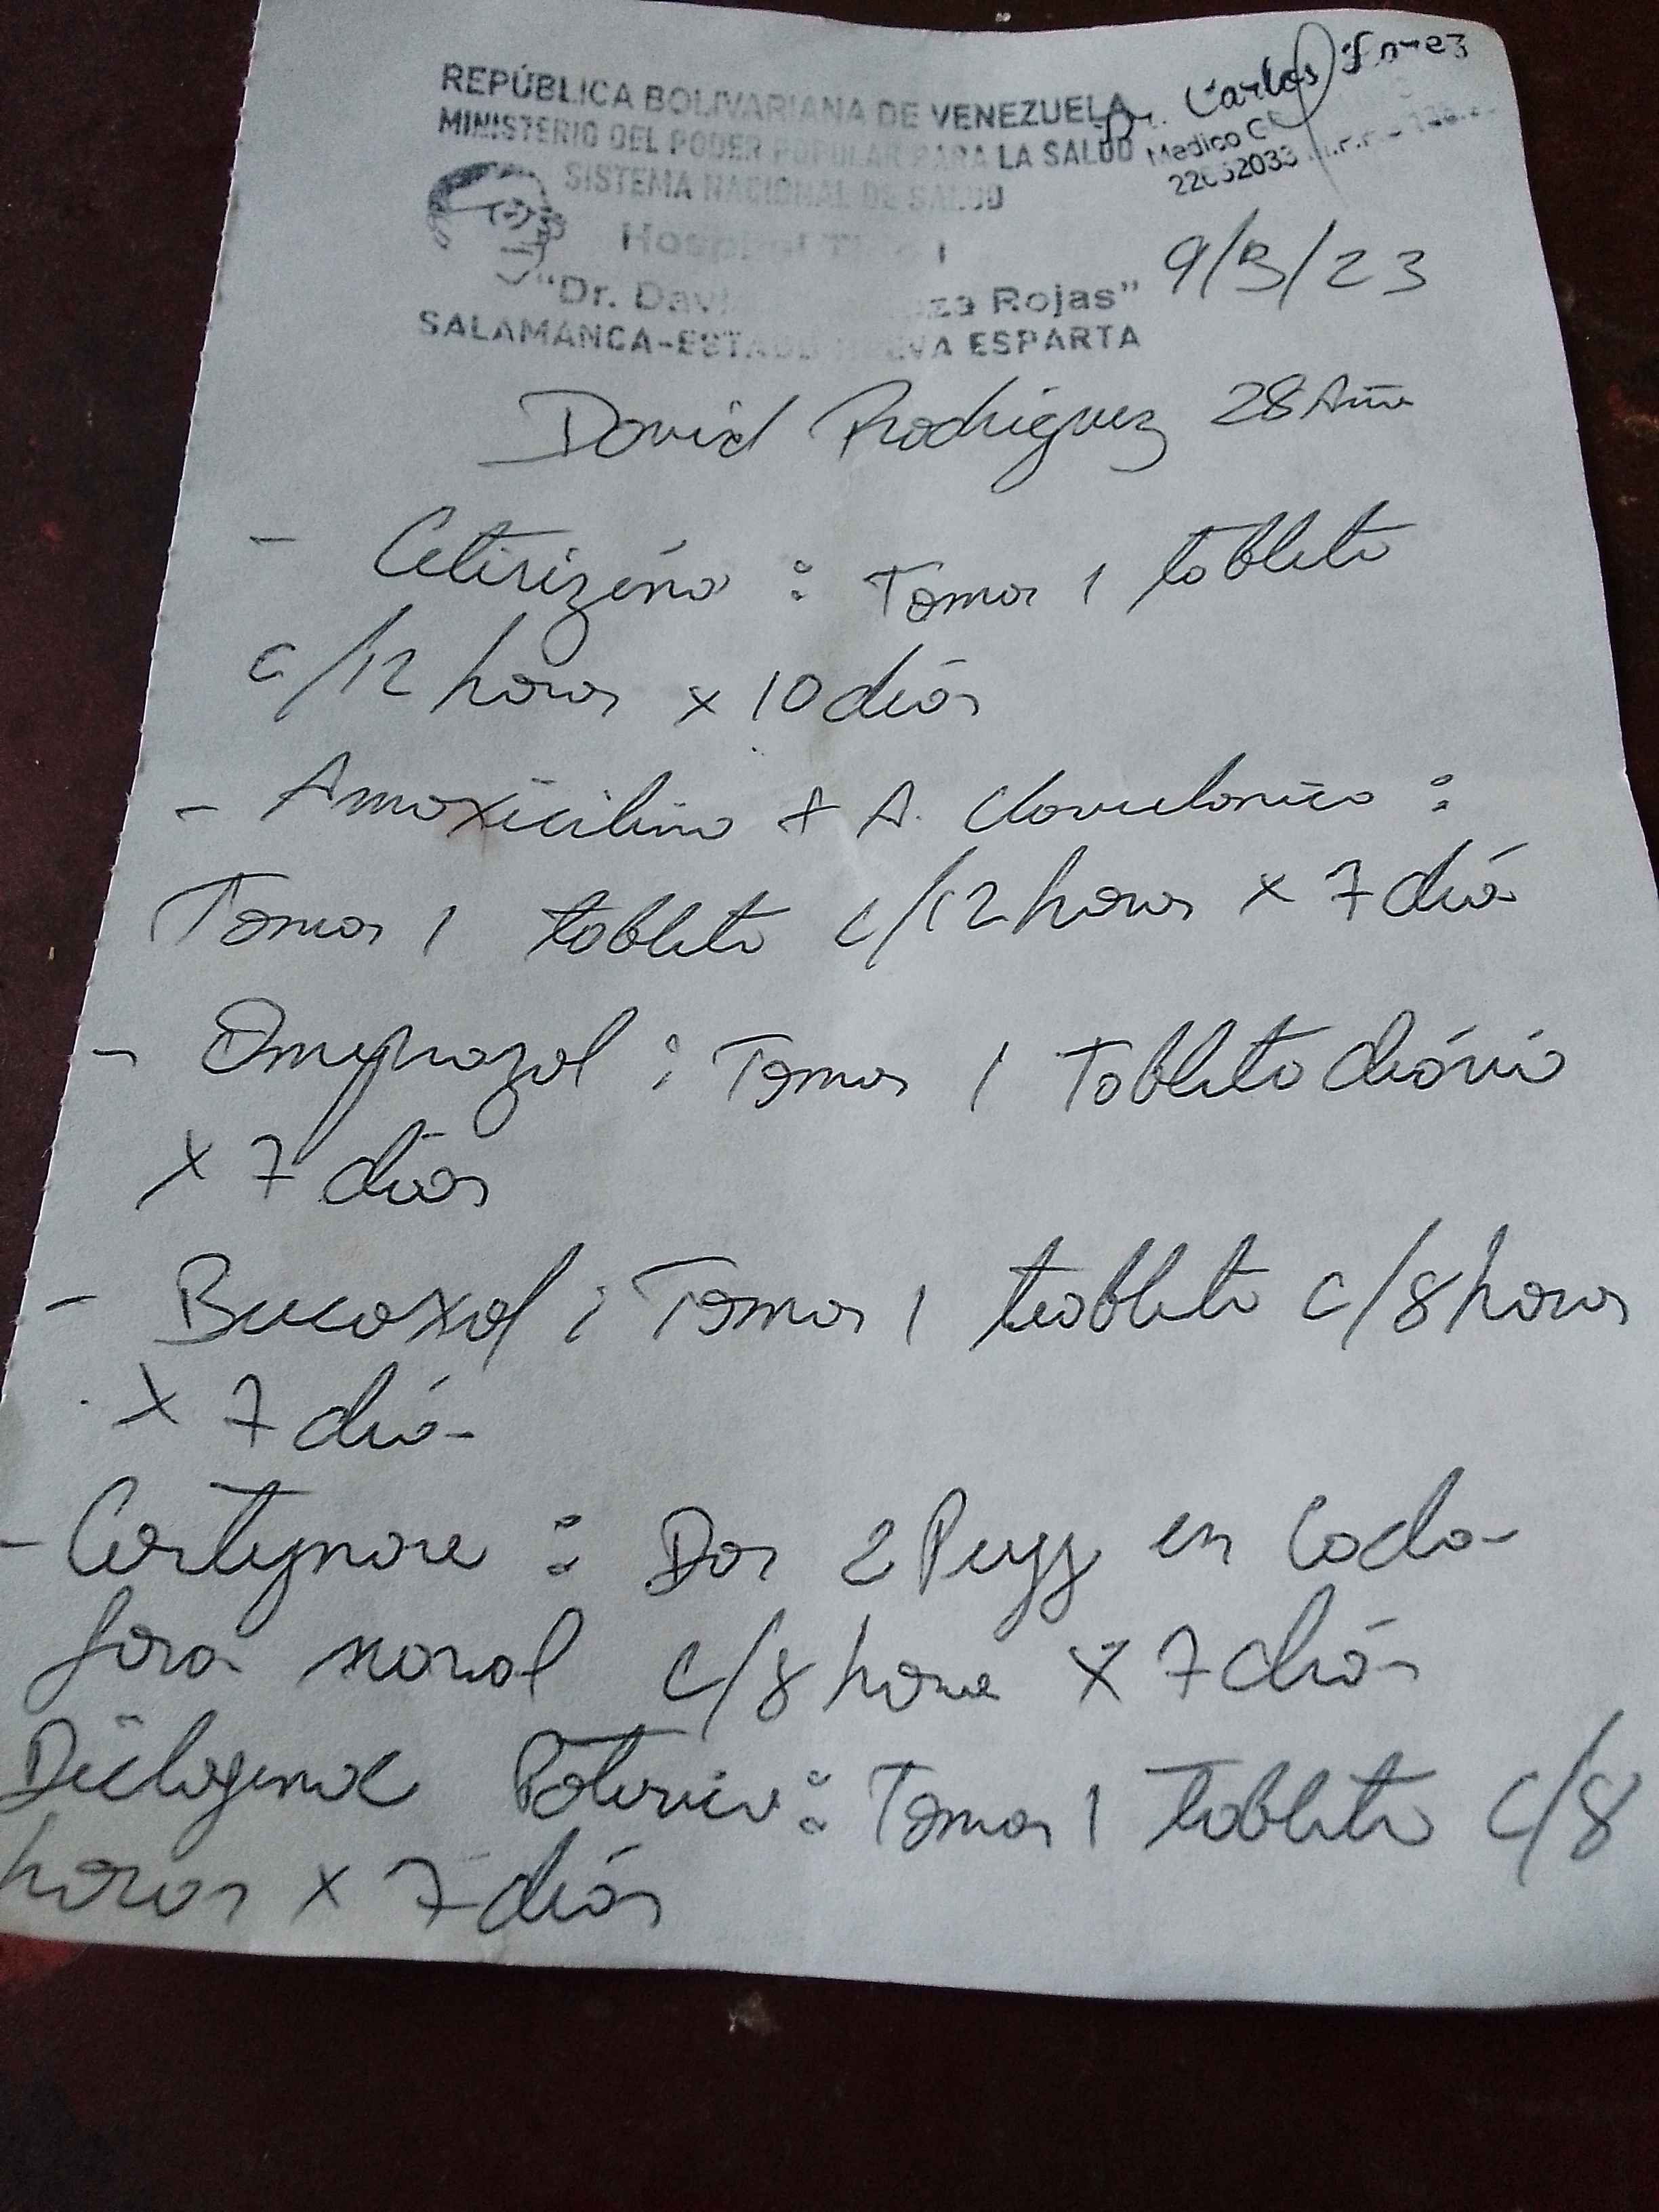 REPÚBLICA BOLIVARIANA DE VENEZUELA
MINISTERIO DEL PODER POPULAR PARA LA SALUD
SISTEMA NACIONAL DE SALUD
Hospital
"Dr. Rojas"
SALAMANCA-ESTADO NUEVA ESPARTA
Dr. Carlos
Medico
9/3/23
David Rodriguez 28 Años
- Cetirizina : Tomar 1 tableta
c/12 horas x 10 días
- Amoxicilina + A. Clavulanico :
Tomar 1 tableta c/12 horas x 7 días
- Omeprazol : Tomar 1 Tableta diária
x 7 días
- Bucoxol : Tomar 1 tableta c/8 horas
x 7 días
- : Dar 2 Puff en Cada
fosa nasal c/8 horas x 7 días
Diclofenac Potasico : Tomar 1 tableta c/8
horas x 7 días